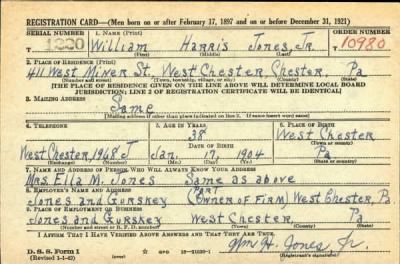 REGISTRATION CARD—(Men born on or after February 17, 1897 and on or before December 31, 1921)
SERIAL NUMBER 1. NAME (Print) ORDER NUMBER
1220 William Harris Jones, Jr. 10980
(First) (Middle) (Last)
2. PLACE OF RESIDENCE (Print)
411 West Miner St. West Chester, Chester, Pa
(Number and street) (Town, township, village, or city) (County) (State)
[THE PLACE OF RESIDENCE GIVEN ON THE LINE ABOVE WILL DETERMINE LOCAL BOARD
JURISDICTION; LINE 2 OF REGISTRATION CERTIFICATE WILL BE IDENTICAL]
3. MAILING ADDRESS
Same
[Mailing address if other than place indicated on line 2. If same insert word same]
4. TELEPHONE 5. AGE IN YEARS 6. PLACE OF BIRTH
38 West Chester
DATE OF BIRTH (Town or county)
West Chester, 1968 J Jan. 17, 1904 Pa
(Exchange) (Number) (Mo.) (Day) (Yr.) (State or country)
7. NAME AND ADDRESS OF PERSON WHO WILL ALWAYS KNOW YOUR ADDRESS
Mrs. Ella M. Jones Same as above
8. EMPLOYER'S NAME AND ADDRESS
Part
Jones and Gurskey (Owner of Firm) West Chester, Pa
9. PLACE OF EMPLOYMENT OR BUSINESS
Jones and Gurskey West Chester, Pa
(Number and street or R. F. D. number) (Town) (County) (State)
I AFFIRM THAT I HAVE VERIFIED ABOVE ANSWERS AND THAT THEY ARE TRUE.
D. S. S. Form 1
(Revised 1-1-42) Wm H. Jones Jr.
(Registrant's signature)